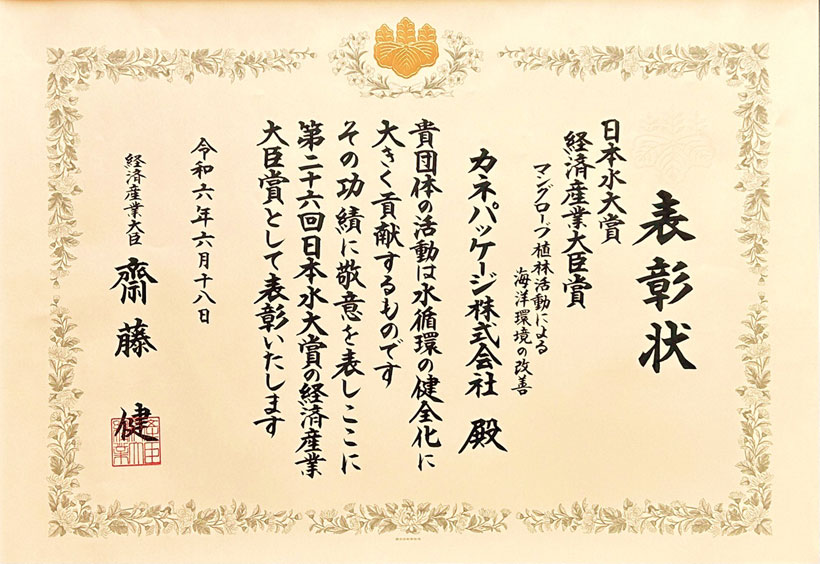 表彰状
日本水大賞
経済産業大臣賞
マングローブ植林活動による
海洋環境の改善
カネパッケージ株式会社 殿
貴団体の活動は水循環の健全化に
大きく貢献するものです
その功績に敬意を表しここに
第二十六回日本水大賞の経済産業
大臣賞として表彰いたします
令和六年六月十八日
経済産業大臣 齋藤 健